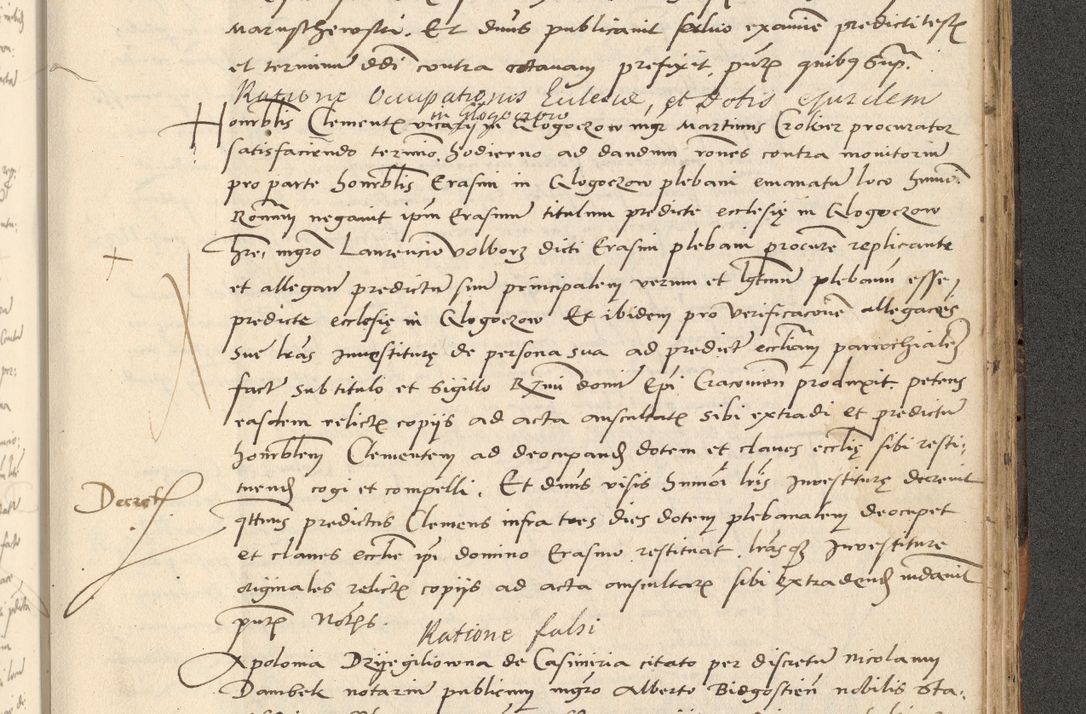 Maruschewsky. Et dnus publicavit salvo examine predicti testis
et terminum ddi contra octavam prefixit, pntibus quibus supra.
Ratione Occupationis Ecclesie, et Dotis eiusdem
in Glogoczow
Honorblis Clementis vicarij in Glogoczow mgr Martinus Crokier procurator
satisfaciendo termino hodierno ad dandum rones contra monitorium
pro parte honorblis Erasmi in Glogoczow plebani emanatum loco hmoi
Ronum negavit ipsum Erasmum titulum predicte ecclesię in Glogoczow
hre, mgro Laurencio Volborz dicti Erasmi plebani procure replicante
et allegan predictum suum principalem verum et lgtimum plebanum esse
predicte ecclesię in Glogoczow Et ibidem pro verificacone allegaces
sue lras Investiturę de persona sua ad predict eccliam parrochialem
fact sub titulo et sigillo Rmi domi Epi Cracovien produxit, petens
easdem relictis copijs ad acta auscultatis sibi extradi et predictum
honorblem Clementem ad deocupand dotem et claves ecclię sibi resti-
tuend cogi et compelli. Et dnus visis hmoi lris Investiturę decrevit
Decret
qttnus predictus Clemens infra tres dies dotem plebanalem deocupet
et claves ecclie ipi domino Erasmo restituat, lrasq Investiture
originales relictis copijs ad acta auscultatis sibi extradend mdavit
pntibus Notarys.
Ratione falsi
Apolonia Drzyegiliowna de Casimiria citato per discretum Nicolaum
Dambek notarium publicum mgro Alberto Biegostien nobilis Sta-